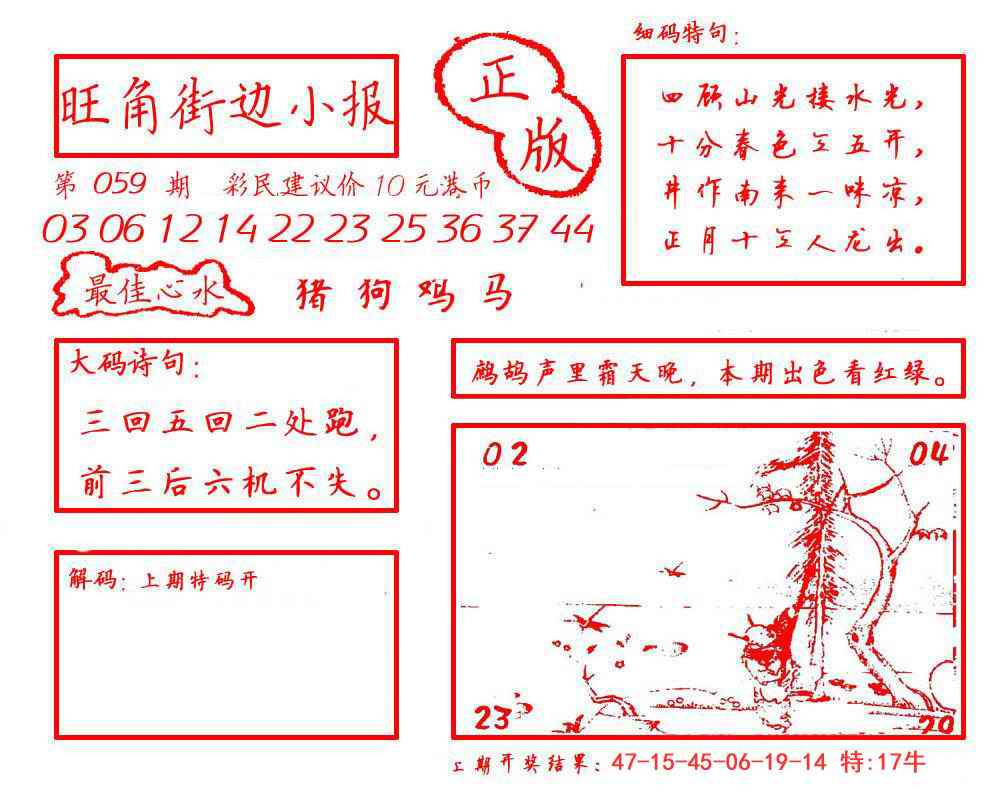 旺角街边小报
正版
细码特句：
四顾山光接水光，
十分春色至五开，
井作南来一味凉，
正月十至人龙出。
第 059 期 彩民建议价 10 元港币
03 06 12 14 22 23 25 36 37 44
最佳心水
猪 狗 鸡 马
大码诗句：
三回五回二处跑，
前三后六机不失。
鹧鸪声里霜天晚，本期出色看红绿。
解码：上期特码开
02
04
23
20
上期开奖结果：47-15-45-06-19-14 特:17牛